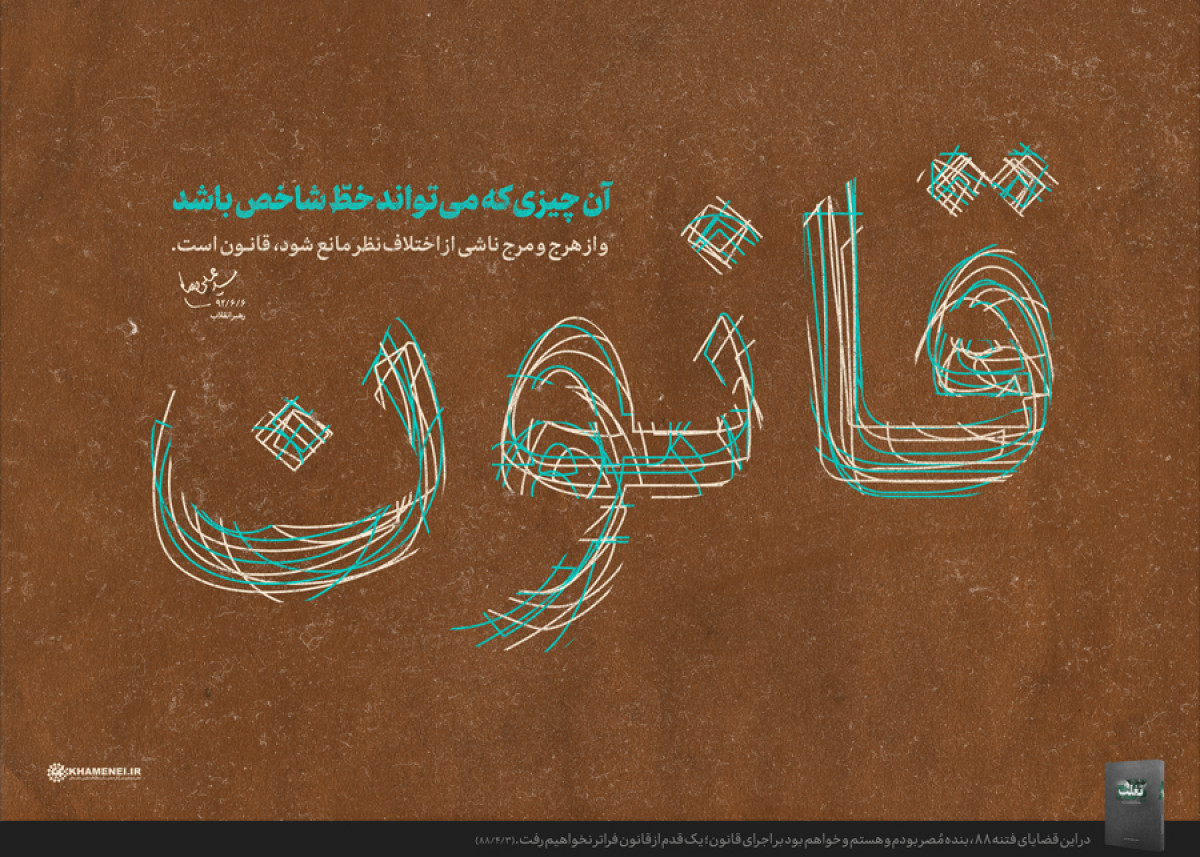 قانون
آن چیزی که می‌تواند خطّ شاخص باشد
و از هرج و مرج ناشی از اختلاف نظر مانع شود، قانون است.
۹۲/۶/۶
رهبر انقلاب
KHAMENEI.IR
تغلب
در این قضایای فتنه ۸۸، بنده مُصر بودم و هستم و خواهم بود بر اجرای قانون؛ یک قدم از قانون فراتر نخواهیم رفت. (۸۸/۴/۳)